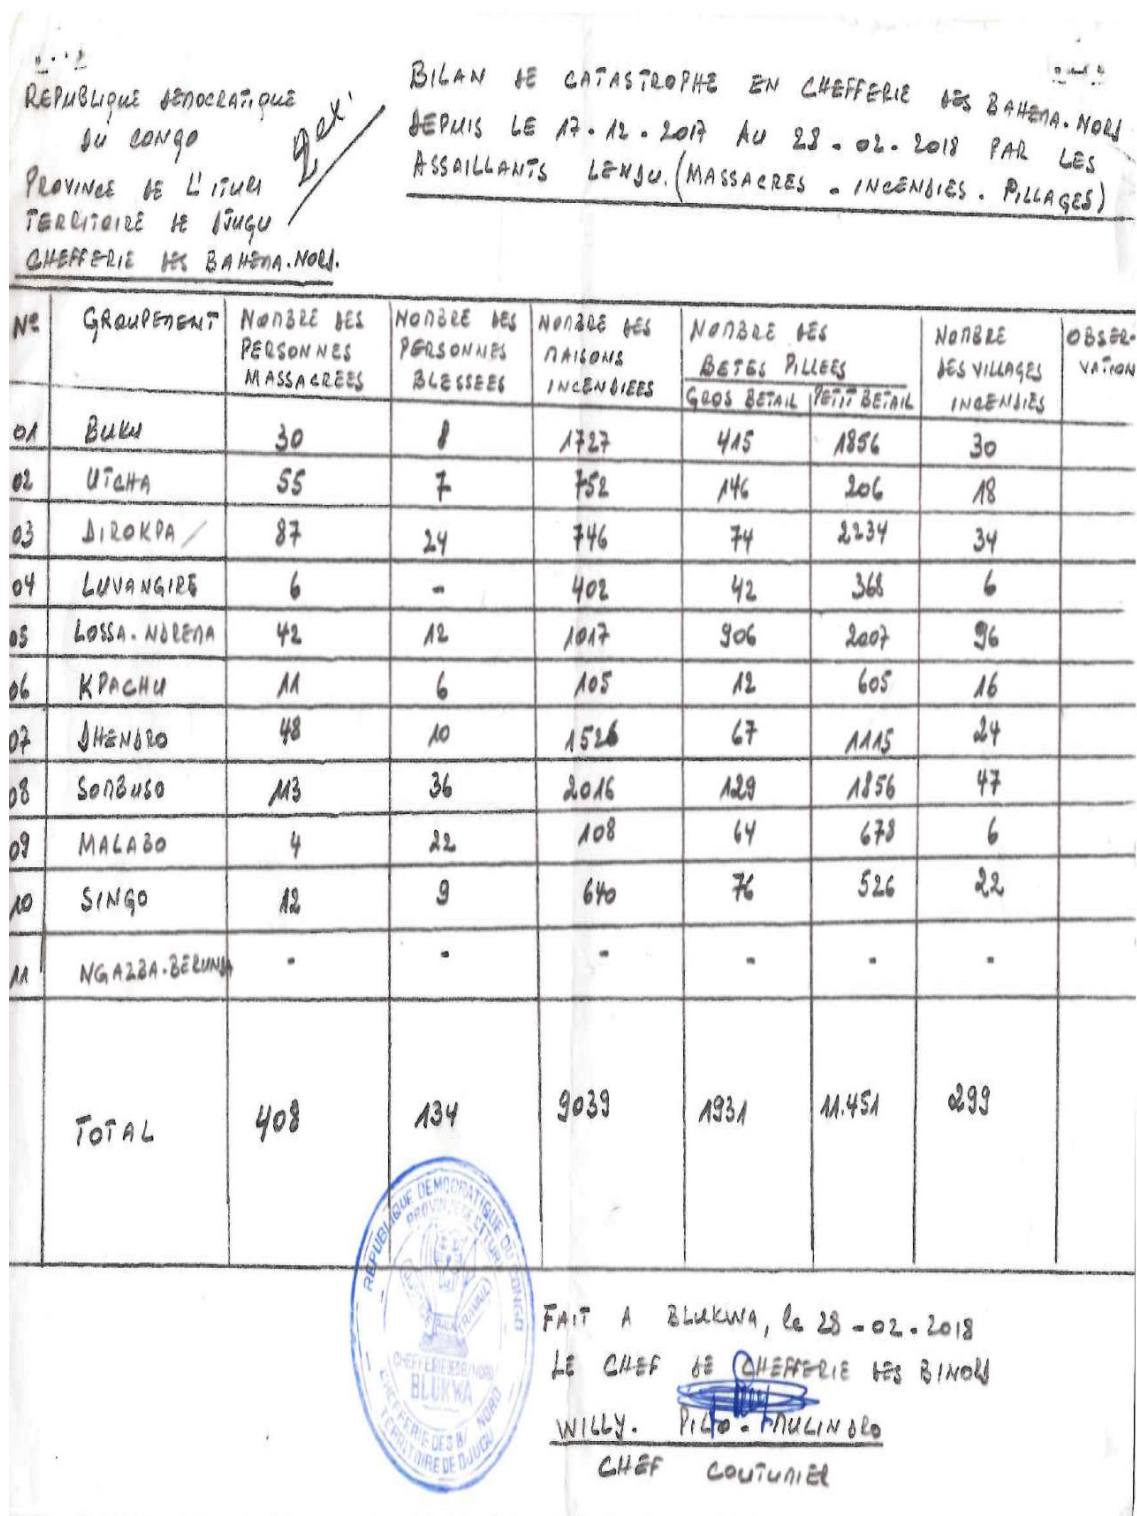 REPUBLIQUE DEMOCRATIQUE
DU CONGO
PROVINCE DE L'ITURI
TERRITOIRE DE DJUGU
CHEFFERIE DES BAHEMA.NORD.
2ex'
BILAN DE CATASTROPHE EN CHEFFERIE DES BAHEMA.NORD
DEPUIS LE 17.12.2017 AU 28.02.2018 PAR LES
ASSAILLANTS LENDU. (MASSACRES - INCENDIES. PILLAGES)
N° GROUPEMENT NOMBRE DES PERSONNES MASSACREES NOMBRE DES PERSONNES BLESSEES NOMBRE DES MAISONS INCENDIEES NOMBRE DES BETES PILLEES GROS BETAIL PETIT BETAIL NOMBRE DES VILLAGES INCENDIES OBSER-VATION
01 BUKU 30 8 1727 415 1856 30
02 UTCHA 55 7 752 146 206 18
03 DIROKPA 87 24 746 74 2234 34
04 LUVANGIRE 6 - 402 42 368 6
05 LOSSA.NDREMA 42 12 1017 906 2007 96
06 KPACHU 11 6 105 12 605 16
07 DHENDRO 48 10 1526 67 1115 24
08 SOMBUSO 113 36 2016 129 1856 47
09 MALABO 4 22 108 64 678 6
10 SINGO 12 9 640 76 526 22
11 NGAZBA.BERUNDA - - - - - -
TOTAL 408 134 9039 1931 11.451 299
REPUBLIQUE DEMOCRATIQUE DU CONGO
PROVINCE DE L'ITURI
JUSTICE PAIX TRAVAIL
CHEFFERIE DES B/NORD
BLUKWA
CHEFFERIE DES B/ NORD
TERRITOIRE DE DJUGU
FAIT A BLUKWA, le 28-02.2018
LE CHEF DE CHEFFERIE DES B/NORD
WILLY. PILO - MULINDRO
CHEF COUTUMIER